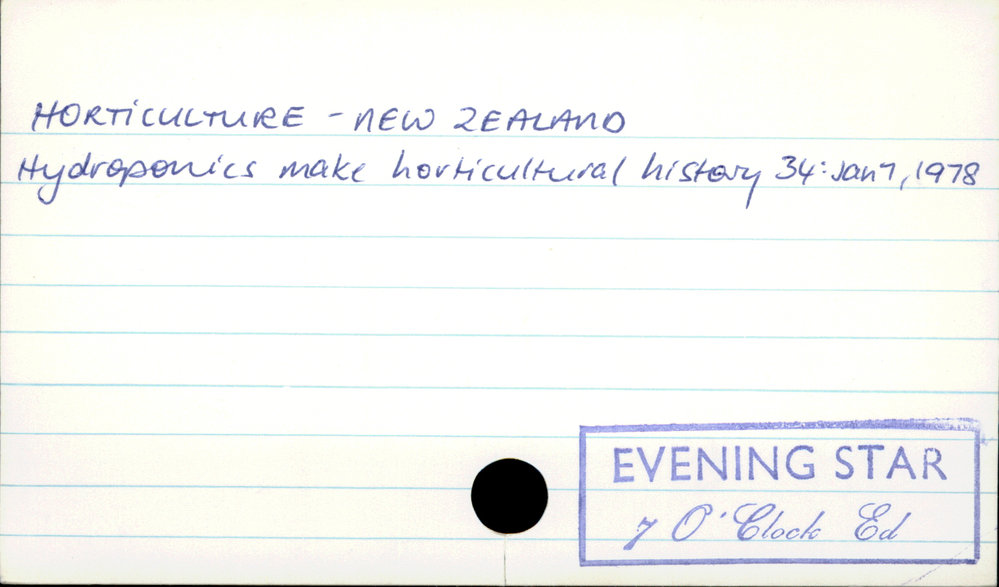 HORTICULTURE - NEW ZEALAND
Hydroponics make horticultural history 34: Jan 7, 1978
EVENING STAR
7 O'Clock Ed